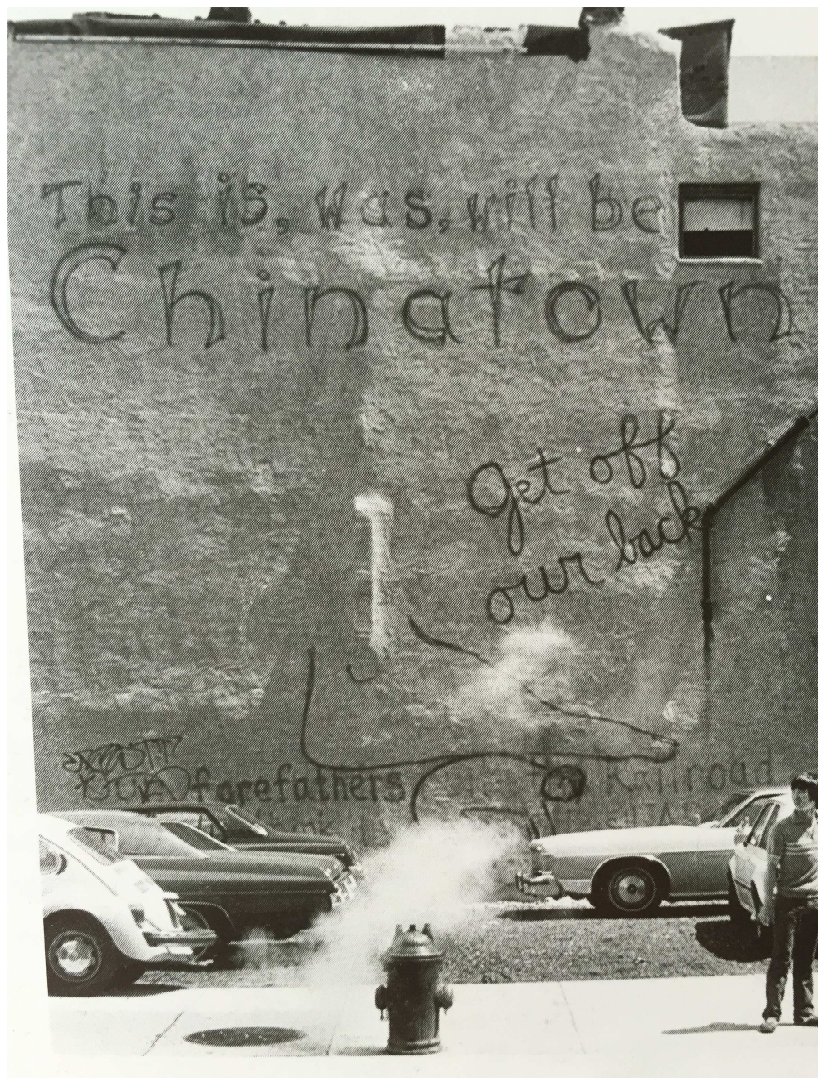 This is, was, will be
Chinatown
Get off
our back
forefathers
Railroad